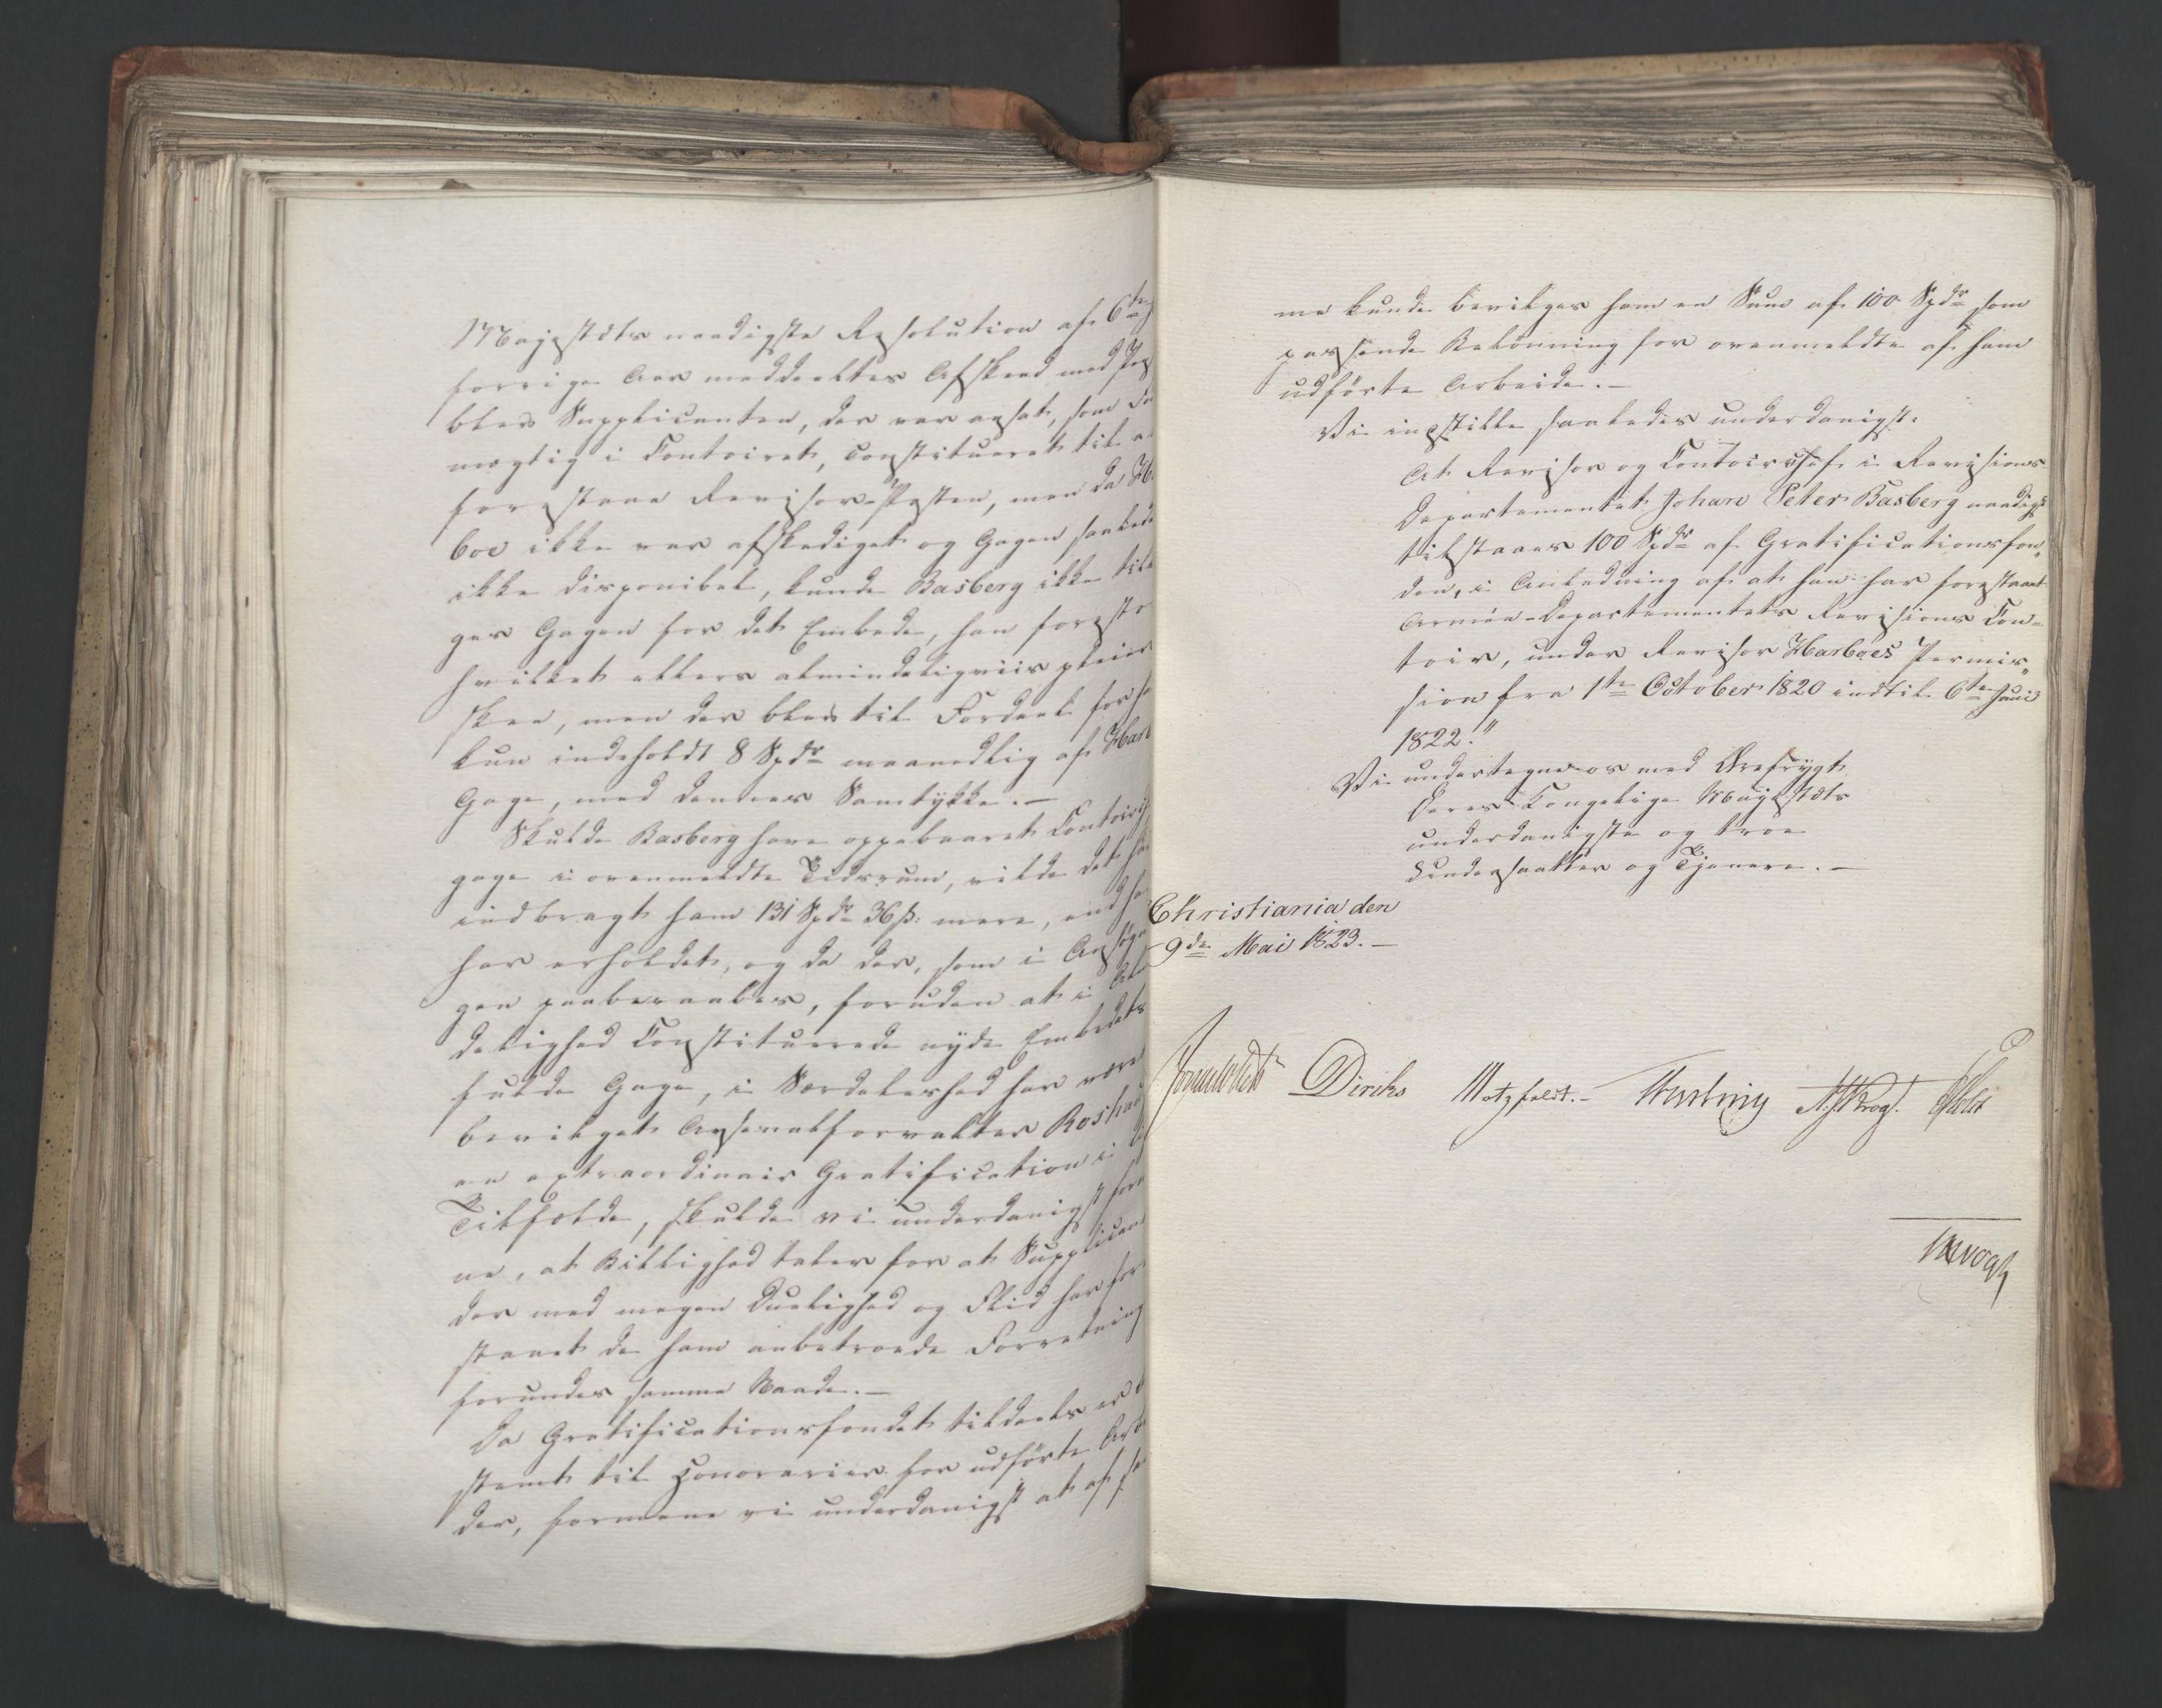 Majestæts naadigste Resolution af 6te J
forrige Aar meddeeltes Afskeed med Pen
blev Supplicanten, der var ansat, som Fu
mægtig i Contoiret, constitueret til at
forestaae Revisor-Posten, men da H.
boe ikke var afskediget og Gagen saaled
ikke disponibel, kunde Basberg ikke till
ges Gagen for det Embede, han foresto
hvilket ellers almindeligviis pleier
skee, men der blev til Fordeel for ha
kun indeholdt 8 Spdr maanedlig af Harb
Gage, med dennes Samtykke.—
Skulde Basberg have oppebaaret Contoirch
gage i ovenmeldte Tidsrum, vilde det ha
indbragt ham 131 Spdr 36 ß: mere, end ha
har erholdet, og da der, som i Ansøgn
gen paaberaabes, foruden at i Al
delighed Constituerede nyde Embedets
fulde Gage, i Særdeleshed har været
bevilget Arsenalforvalter Roshau
en extraordinair Gratification i de
Tilfælde, skulde vi underdanigst form
ne, at Billighed taler for at Supplican
der med megen Duelighed og Flid har fore
staaet de ham anbetroede Forretning
forundes samme Naade.—
Da Gratificationsfondet tildeels er be
stemt til Honorarier for udførte Arb
der, formene vi underdanigst at af sa
me kunde bevilges ham en Sum af 100 Spdr som
passende Belønning for ovenmeldte af ham
udførte Arbeide.—
Vi indstille saaledes underdanigst:
At Revisor og Contoirchef i Revisions
Departementet Johan Peter Basberg naadigst
tilstaaes 100 Spdr af Gratificationsfon„
den, i Anledning af at han har forestaaet
Armee-Departementets Revisions Con-
toir, under Revisor Harboes Permis„
sion fra 1te October 1820 indtil 6te Juni
1822."
Vi undertegne os med Ærefrygt
Deres Kongelige Majestæts
underdanigste og troe
Undersaatter og Tjenere.—
Christiania den
9de Mai 1823.—
Sommerhielm Diriks Motzfeldt.— Treschow Krog. Holst
Vogt